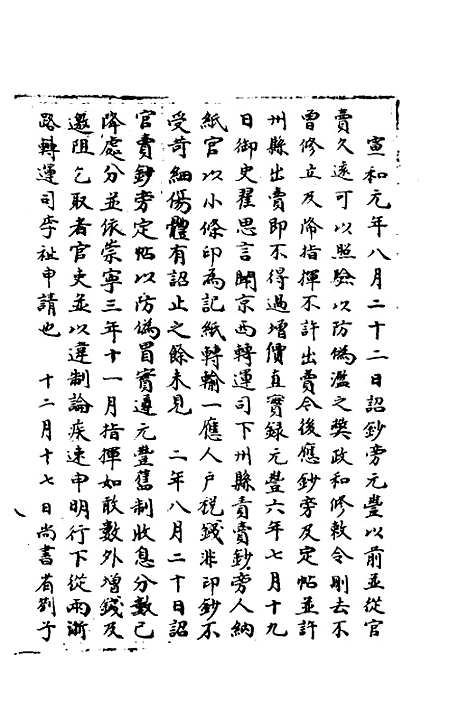 宣和元年八月二十二日詔鈔旁元豐以前並從官
賣久遠可以照驗以防偽濫之獘政和修敕令刪去不
曾修立及降指揮不許出賣今後應鈔旁及定帖並許
州縣出賣即不得過增價直實録元豐六年七月十九
日御史翟思言聞京西轉運司下州縣責賣鈔旁人納
紙官以小條印為記紙轉輸一應人户稅錢非印鈔不
受苛細傷體有詔止之餘未見　二年八月二十日詔
官賣鈔旁定帖以防偽冒實遵元豐舊制收息分數已
降處分並依崇寧三年十一月指揮如敢數外增錢及
邀阻乞取者官吏並以違制論疾速申明行下從兩浙
路轉運司李祉申請也　十二月十七日尚書省劄子